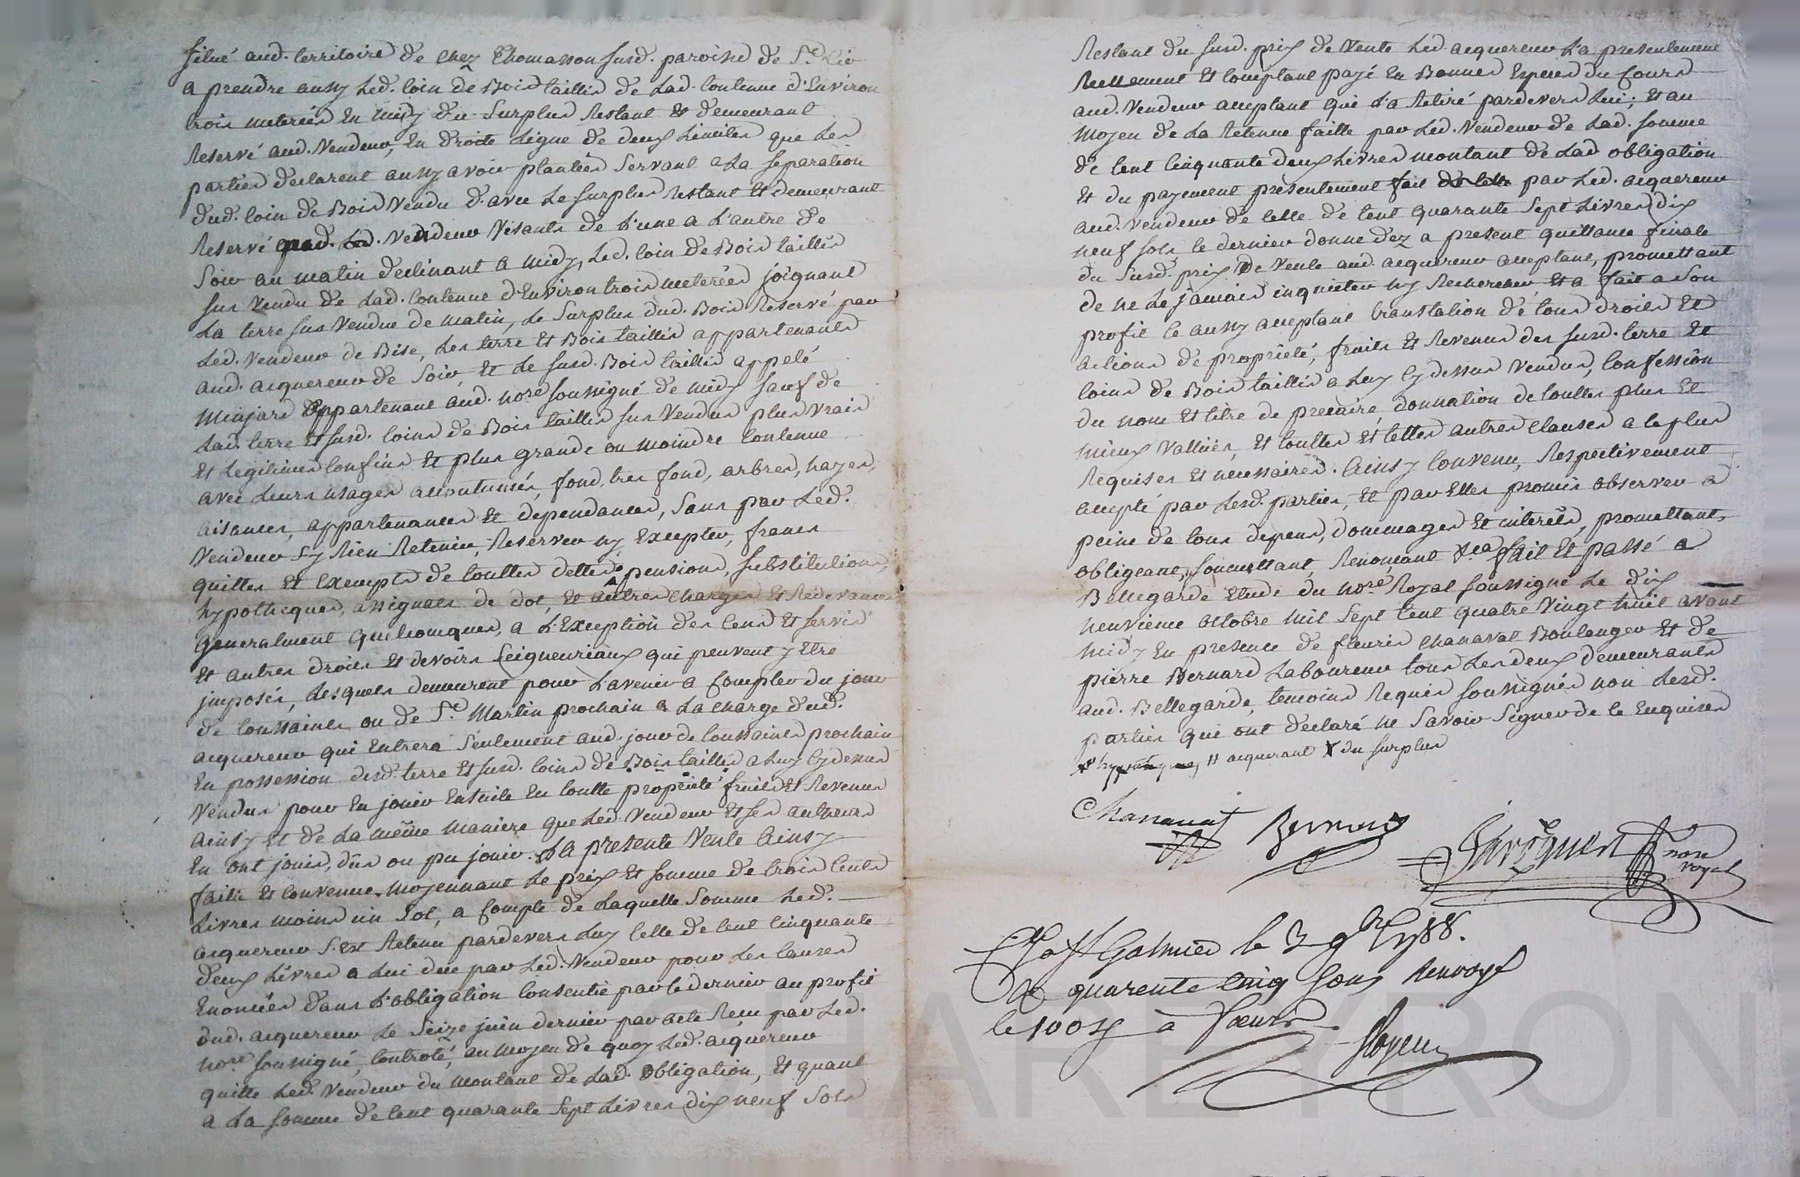 situé aud. territoire de chez Thomasson susd. paroisse de St.
a prendre aussy led. coin de Bois taillis de lad. contenue d'Environ
trois meterées En midy du Surplus Restant et demeurant
Reservé aud. Vendeur, En droite Ligne de deux Limites que les
parties declarent aussy avoir plantées Servant a La Separation
dud. coin de Bois Vendu d'avec Le Surplus Restant et demeurant
Reservé aud. Vendeur Visants de L'une a L'autre de
Soir au matin declinant a midy, Led. coin de Bois taillis
sus Vendu de Lad. Contenue d'Environ trois meterées joignant
La terre sus Vendue de matin, Le Surplus dud. Bois Reservé par
Led. Vendeur de Bise, Les terre Et Bois taillis appartenants
aud. acquereur de Soir, Et Le susd. Bois taillis appelé
appartenant aud. nore. soussigné de midy sauf de
Lad. terre Et susd. coins de Bois taillis sus Vendus plus vrais
Et Legitimes Confins Et plus grande ou moindre Contenue
avec Leurs usages accoutumés, fond, tres fond, arbres, hayes,
aisances, appartenances Et dependances, Sans par Led.
Vendeur S'y Rien Retenir, Reserver ny Excepter, francs
quittes Et Exempts de touttes dettes, pensions, substitutions,
hypotheques, assignats de dot, Et autres charges Et Redevances
Generalment quelconques, a L'Exception des Cens Et servis
Et autres droits Et devoirs Seigneuriaux qui peuvent y Etre
imposés, Lesquels demeurent pour L'avenir a Compter du jour
de toussaints ou de St. Martin prochain a La charge dud.
acquereur qui Entrera Seulement aud. jour de toussaints prochain
En possession desd. terre Et susd. coins de Bois taillis a Luy Cy dessus
Vendus pour En jouir Ensuite En toutte propriété fruits et Revenus
ainsy Et de La même Maniere que Led. Vendeur Et ses autheurs
En ont joui, dû ou pu jouir. La presente Vente Ainsy
faitte Et Convenue Moyennant Le prix Et somme de trois Cents
Livres moins un Sol, a Compte de Laquelle Somme Led.
acquereur S'est Retenu pardevers Luy Celle de Cent Cinquante
deux Livres a Lui due par Led. Vendeur pour Les Causes
Enoncées dans L'obligation Consentie par Ce dernier au profit
dud. acquereur Le Seize juin dernier par acte Recu par Led.
nore. soussigné, Controlé, au Moyen de quoy Led. acquereur
quitte Led. Vendeur du Montant de Lad. Obligation, Et quant
a La Somme de Cent quarante Sept Livres dix neuf Sols
Restant du susd. prix de Vente Led. acquereur L'a presentement
Reellement Et Comptant payé En Bonnes Especes du Cours
aud. Vendeur acceptant qui L'a Retiré pardevers Lui; Et au
Moyen de La Retenue faitte par Led. Vendeur de Lad. somme
de Cent Cinquante deux Livres montant de Lad. obligation
Et du payement presentement fait de Celle par Led. acquereur
aud. Vendeur de Celle de Cent quarante Sept Livres dix
neuf sols, Ce dernier donne dez a present quittance finale
du Susd. prix De Vente aud. acquereur acceptant, promettant
de ne Le jamais inquieter ny Rechercher Et a fait a Son
profit Ce aussy acceptant translation de tous droits Et
actions de proprieté, fruits Et Revenus des susd. terre Et
coins de Bois taillis a Luy Cy dessus Vendus, Confession
du nom Et titre de precaire, donnation de touttes plus Et
mieux Vallües, Et touttes Et telles autres Clauses a Ce plus
Requises Et necessaires. Ainsy Convenu, Respectivement
accepté par Lesd. parties, Et par Elles promis observer a
peine de tous depens, dommages Et interêts, promettant,
obligeant, Soumettant Renonceant &ca. fait Et passé a
Bellegarde Etude du nore. Royal soussigné Le dix
neuvieme octobre mil Sept Cent quatre Vingt huit avant
midy En presence de fleuris Chanavat Boulanger Et de
pierre Bernard Laboureur tous Les deux demeurants
aud. Bellegarde, temoins Requis soussignés non Lesd.
parties qui ont declaré ne Savoir Signer de Ce Enquises
acquereur X du surplus
Chanavat
Bernard
nore
royal
a St Galmier le 3 9bre 1788.
quarente cinq sous renvoyé
le 100e a